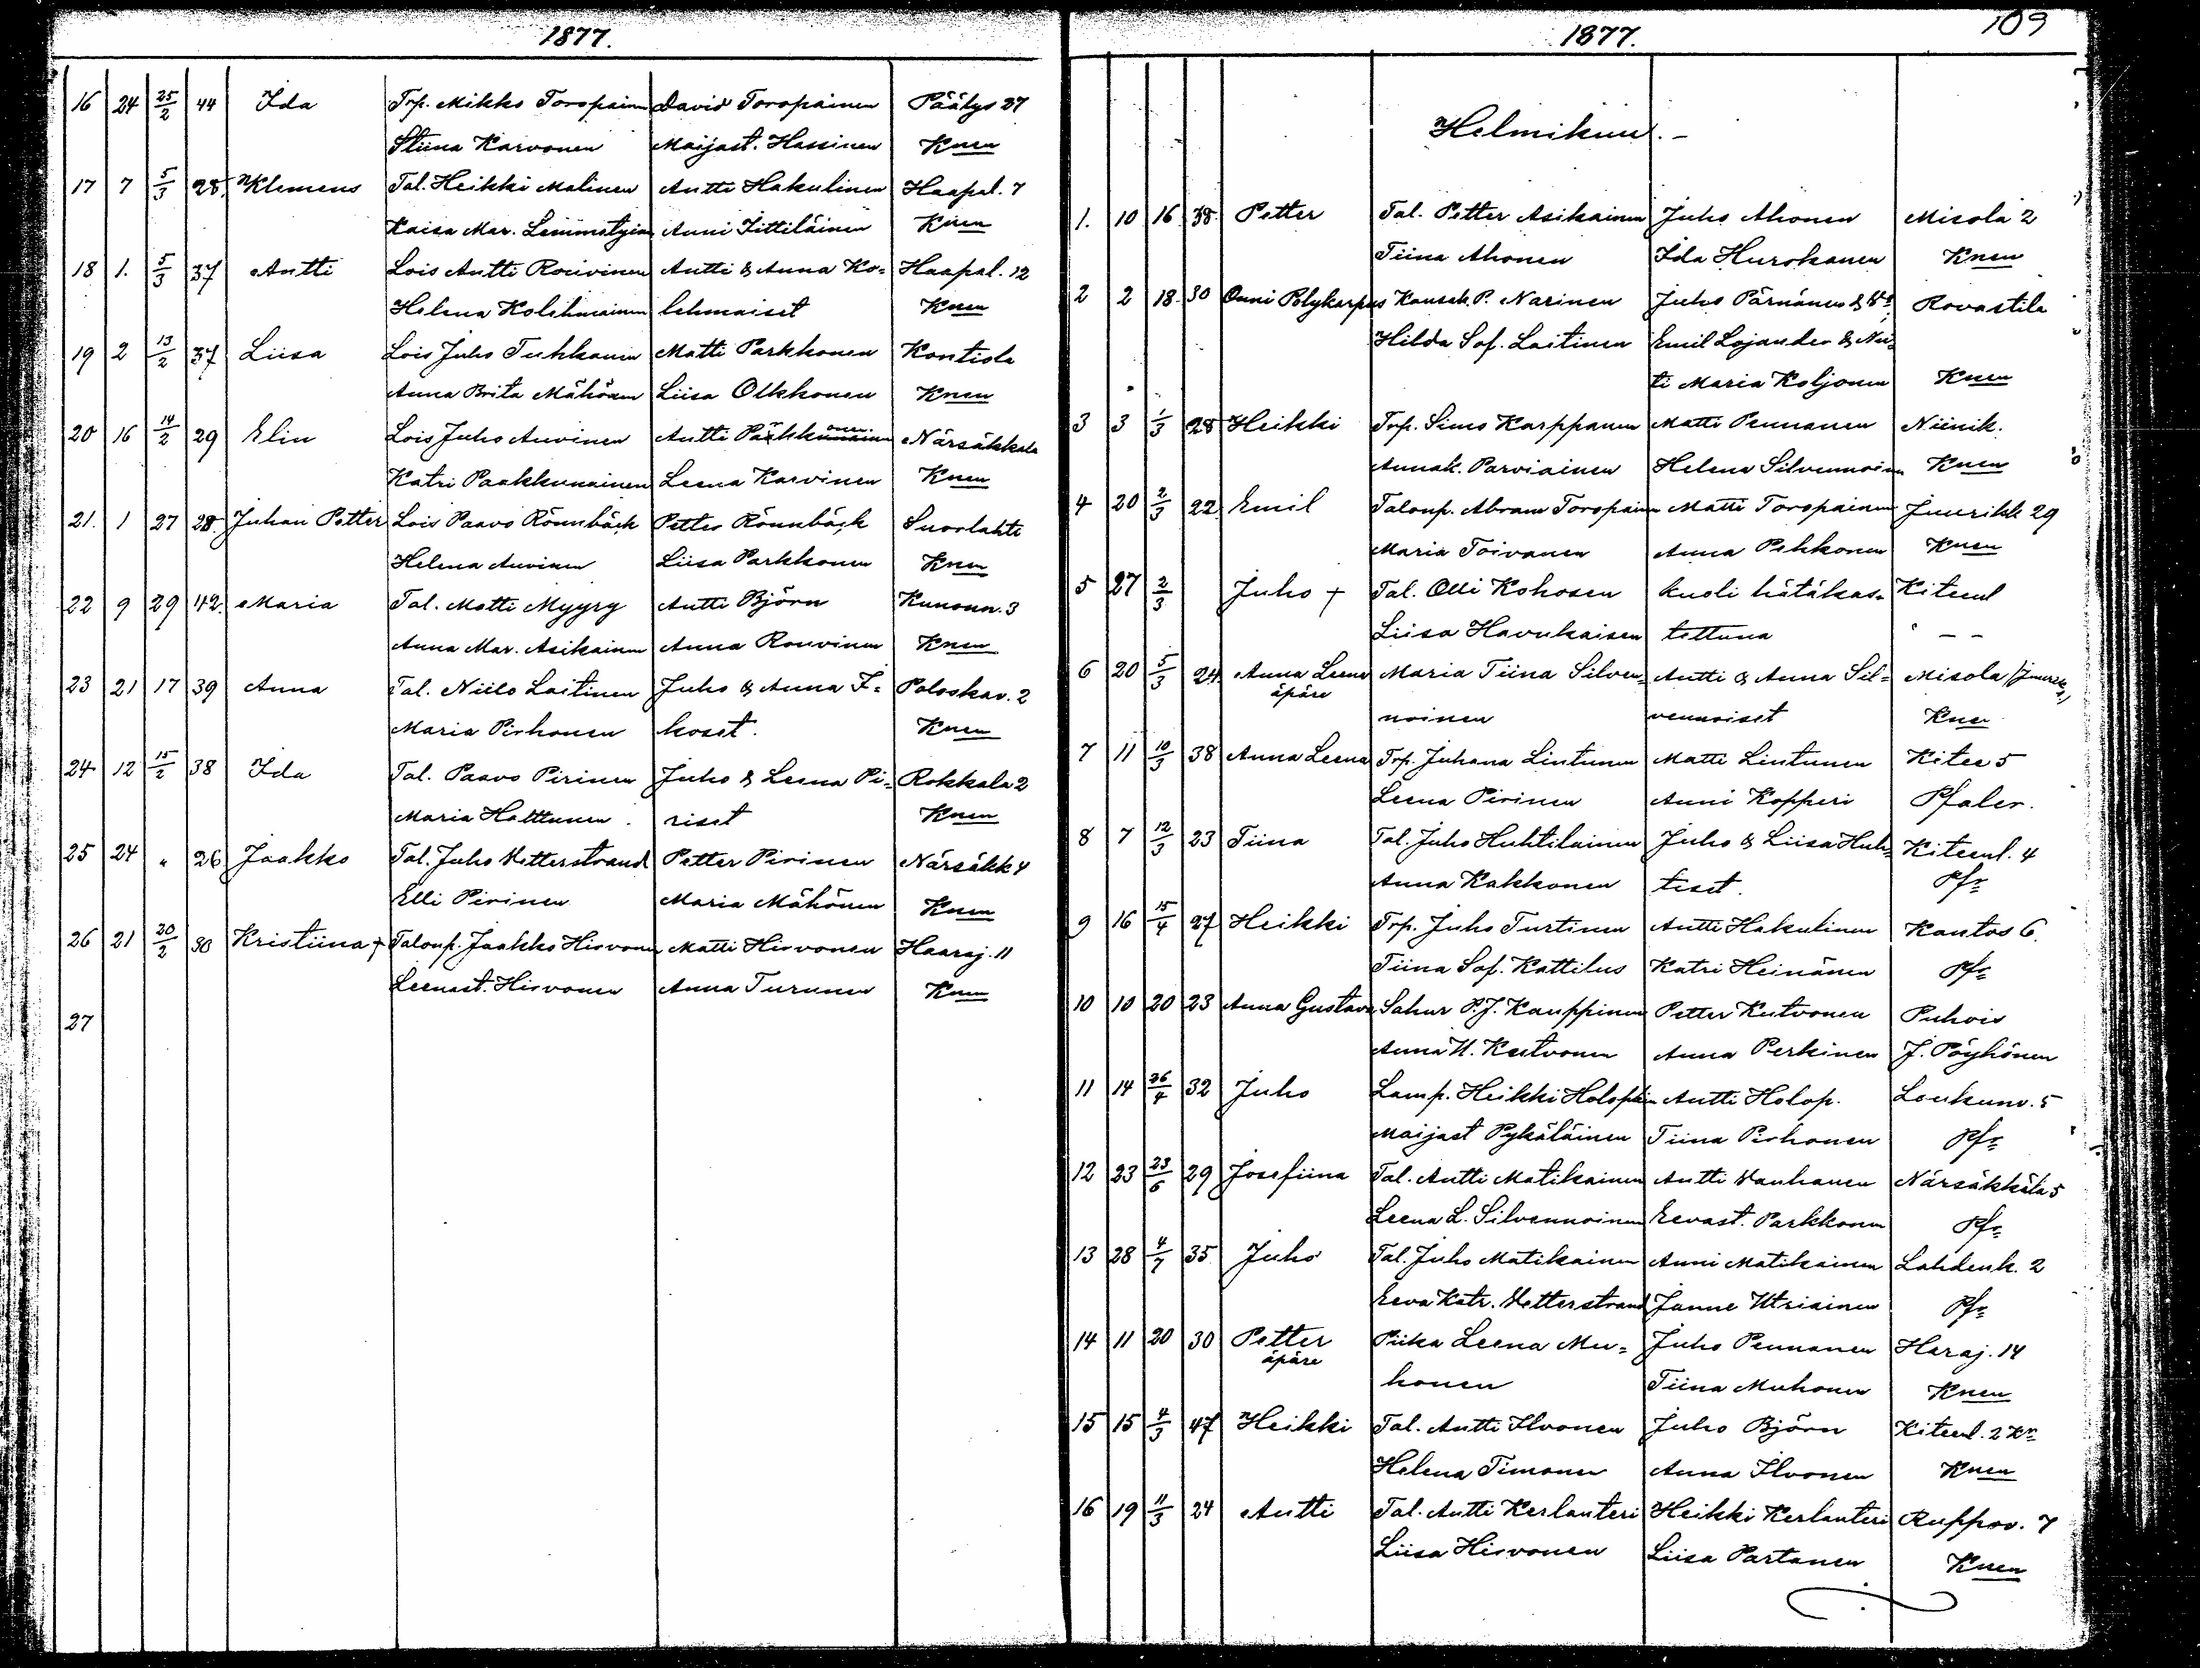 1877.
16 24 25/2 44 Ida Trp. Mikko Toropainen David Toropainen Päätys 27
Stiina Karvonen Maijast. Hassinen Knen
17 7 5/3 28 Klemens Tal. Heikki Malinen Antti Hakulinen Haapal. 7
Kaisa Mar. Anni Tittiläinen Knen
18 1. 5/3 37 Antti Lois Antti Rouvinen Antti & Anna Ko= Haapal. 12
Helena Kolehmainen lehmaiset Knen
19 2 13/2 37 Liisa Lois Juho Tuhkanen Matti Parkkonen Kontiola
Anna Brita Mähönen Liisa Olkkonen Knen
20 16 14/2 29 Elin Lois Juho Auvinen Antti Närsäkkälä
Katri Paakkunainen Leena Karvinen Knen
21. 1 27 28 Juhan Petter Lois Paavo Rönnbäck Petter Rönnbäck Suorlahti
Helena Auvinen Liisa Parkkonen Knen
22 9 29 42. Maria Tal. Matti Myyry Antti Björn Kunonn. 3
Anna Mar. Asikainen Anna Rouvinen Knen
23 21 17 39 Anna Tal. Niilo Laitinen Juho & Anna I= Poloskav. 2
Maria Pirhonen koset. Knen
24 12 15/2 38 Ida Tal. Paavo Pirinen Juho & Leena Pi= Rokkala 2
Maria Halttunen. riset Knen
25 24 " 26 Jaakko Tal. Juho Vetterstrand Petter Pirinen Närsäkk 4
Elli Pirinen Maria Mähönen Knen
26 21 20/2 30 Kristiina + Taloup. Jaakko Hirvonen Matti Hirvonen Haaraj. 11
Leenast. Hirvonen Anna Turunen Knen
27
1877.
109
Helmikuu. -
1. 10 16 38 Petter Tal. Petter Asikainen Juho Ahonen Misola 2
Tiina Ahonen Ida Hurskanen Knen
2 2 18 30 Onni Polykarpus Kansak. P. Narinen Juho Pärnänen & Vo Rovastila
Hilda Sof. Laitinen Emil Lojander & Nei=
ti Maria Koljonen Knen
3 3 1/3 28 Heikki Trp. Simo Karppanen Matti Pennanen Niinik.
Annak. Parviainen Helena Silvennoinen Knen
4 20 2/3 22 Emil Taloup. Abram Toropainen Matti Toropainen Juurikk 29
Maria Toivanen Anna Pekkonen Knen
5 27 2/3 Juho + Tal. Olli Kohosen kuoli hätäkas= Kiteenl
Liisa Havukaisen tettuna " - -
6 20 5/3 24 Anna Leena Maria Tiina Silven= Antti & Anna Sil= Misola (Juurikk.)
äpäre noinen vennoiset Knen
7 11 10/3 38 Anna Leena Trp. Juhana Lintunen Matti Lintunen Kitee 5
Leena Pirinen Anni Kopperi Pfaler.
8 7 12/3 23 Tiina Tal. Juho Huhtilainen Juho & Liisa Huh= Kiteenl. 4
Anna Kakkonen tiset. Pfr
9 16 15/4 27 Heikki Trp. Juho Turtinen Antti Hakulinen Kantos 6.
Tiina Sof. Kattilus Katri Heinänen Pfr
10 10 20 23 Anna Gustava Sahur P.J. Kauppinen Petter Kutvonen Puhois
Anna U. Kutvonen Anna Perkinen J. Pöyhönen
11 14 26/4 32 Juho Lamp. Heikki Holopainen Antti Holop. Loukunv. 5
Maijast Pykäläinen Tiina Pirhonen Pfr
12 23 23/6 29 Josefiina Tal. Antti Matikainen Antti Vanhanen Närsäkkälä 5
Leena L. Silvennoinen Eevast. Parkkonen Pfr
13 28 4/7 35 Juho Tal. Juho Matikainen Anni Matikainen Lahdenk. 2
Eeva Katr. Vetterstrand Janne Utriainen Pfr
14 11 20 30 Petter Piika Leena Mu= Juho Pennanen Haraj. 14
äpäre honen Tiina Muhonen Knen
15 15 4/3 47 Heikki Tal. Antti Ilvonen Juho Björn Kiteenl. 2 Kn
Helena Timonen Anna Ilvonen Knen
16 19 11/3 24 Antti Tal. Antti Kerlanteri Heikki Kerlanteri Ruppov. 7
Liisa Hirvonen Liisa Partanen Knen